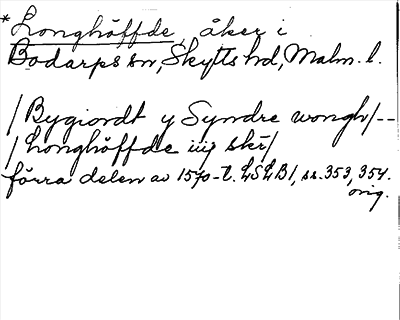 *Longhöffde, åker i
Bodarps sn, Skytts hd, Malm. l.
/Bygiordt y Syndre wongh/--
/Longhöffde iiij skr/
förra delen av 1570-t. LSLB1, ss. 353, 354.
orig.